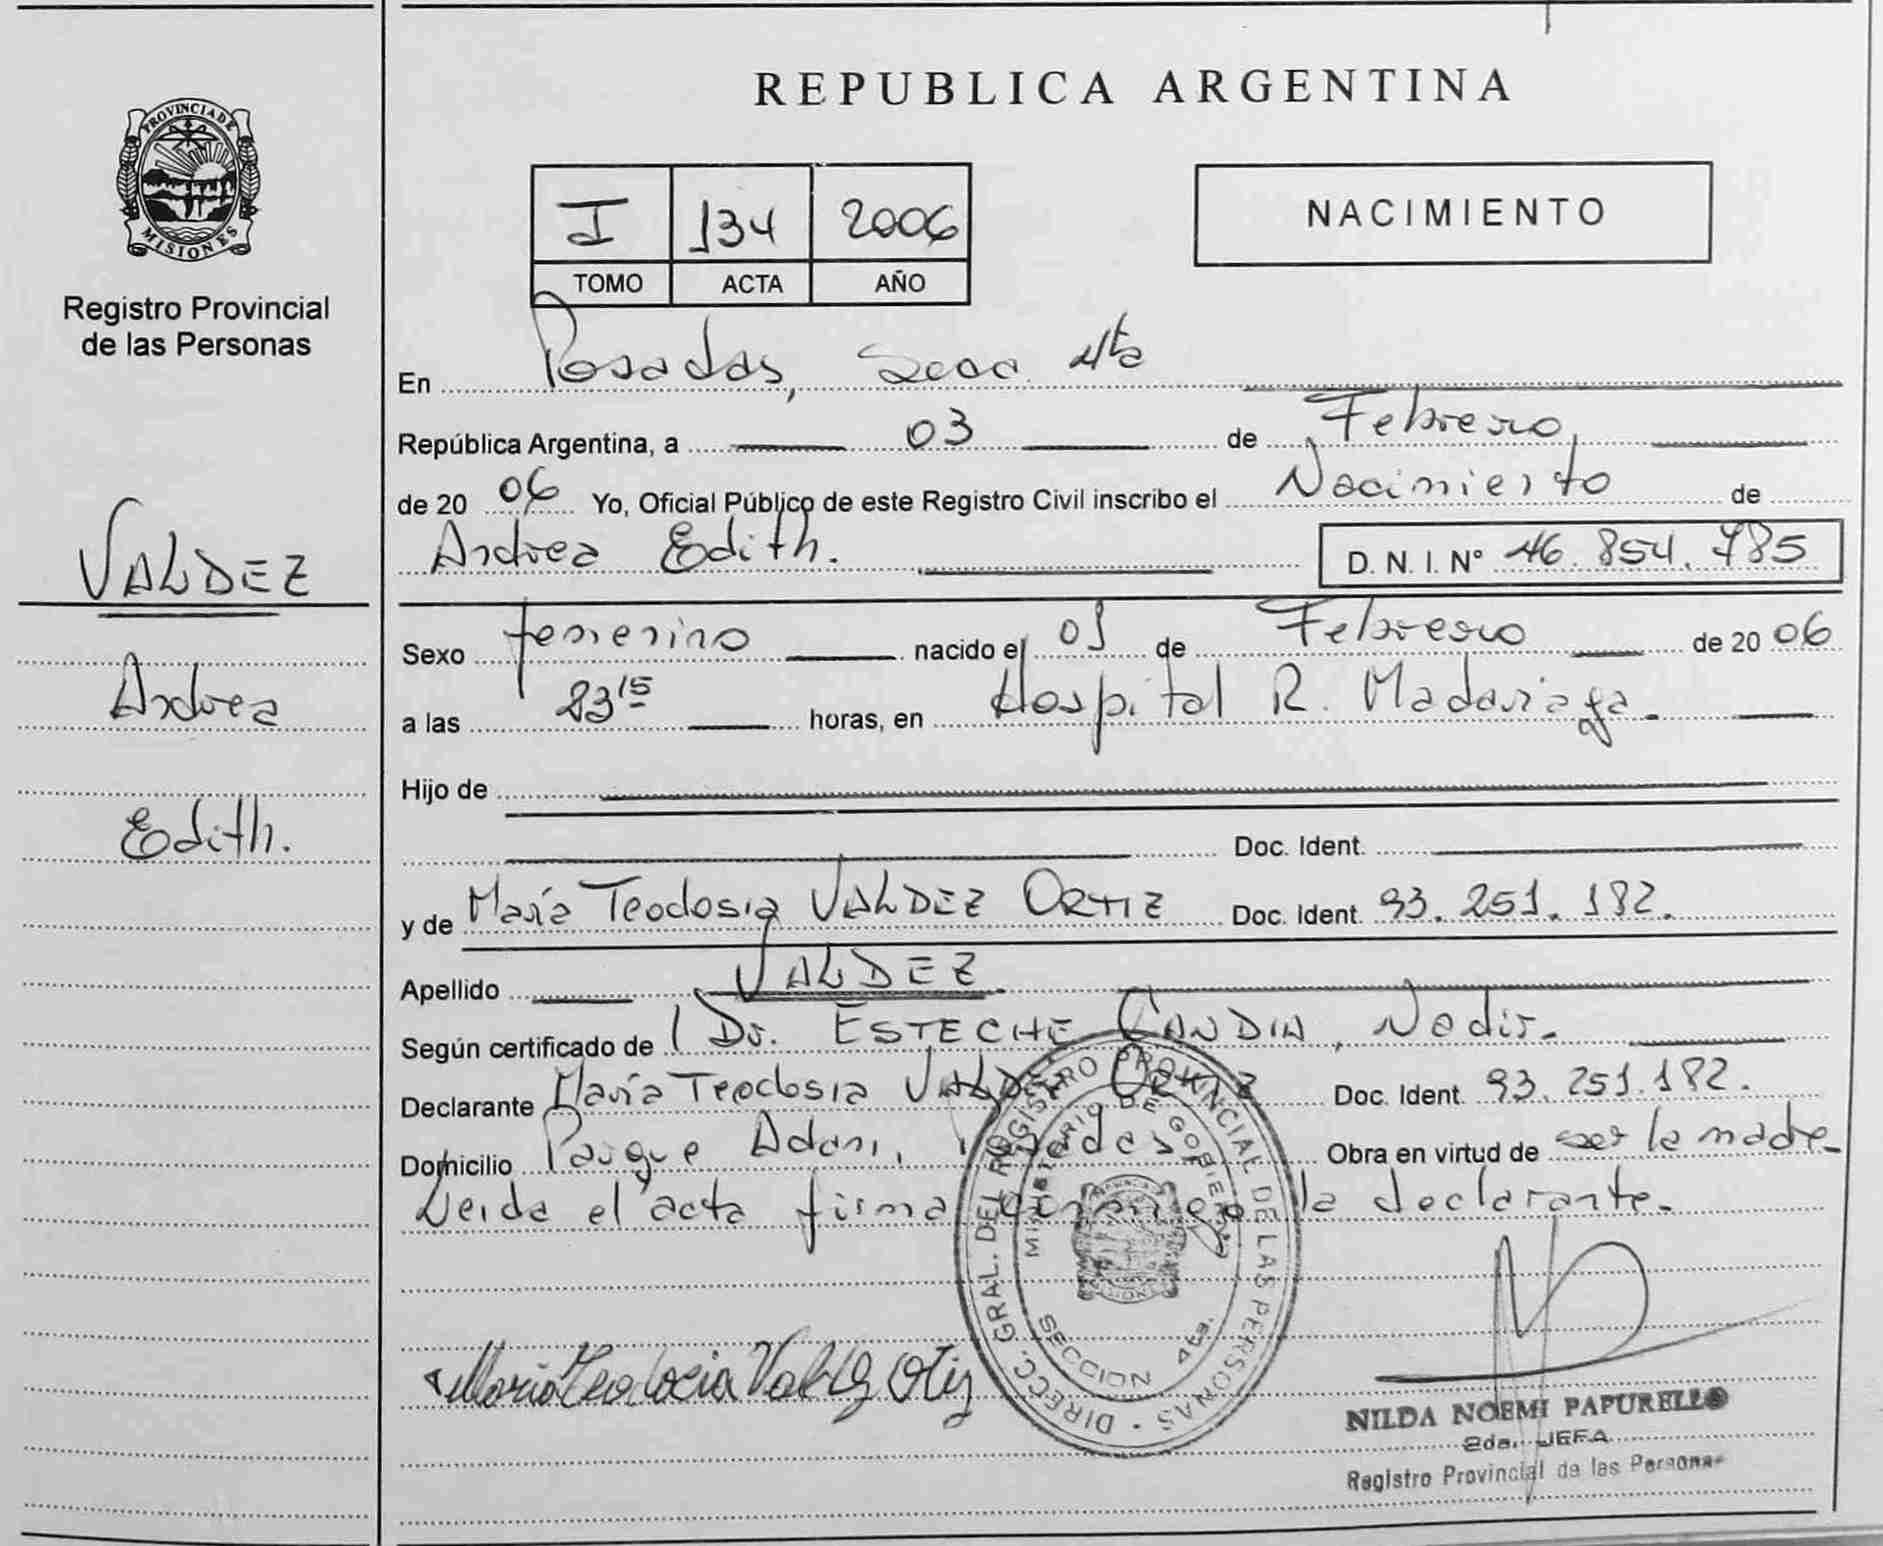 PROVINCIA DE
MISIONES
Registro Provincial
de las Personas
VALDEZ
Andrea
Edith.
REPUBLICA ARGENTINA
I 134 2006
TOMO ACTA AÑO
NACIMIENTO
En Posadas, Secc. 4ta
República Argentina, a 03 de Febrero,
de 20 06 Yo, Oficial Público de este Registro Civil inscribo el Nacimiento de
Andrea Edith. D. N. I. Nº 46.854.785
Sexo femenino nacido el 01 de Febrero de 20 06
a las 23 15 horas, en Hospital R. Madariaga.
Hijo de
Doc. Ident.
y de María Teodosia VALDEZ ORTIZ Doc. Ident. 93.251.182.
Apellido VALDEZ.
Según certificado de Dr. ESTECHE CANDIA, Nadir.
Declarante María Teodosia VALDEZ ORTIZ Doc. Ident. 93.251.182.
Domicilio Parque Adam, Posadas Obra en virtud de ser la madre
Leida el acta firma conmigo la declarante.
DIRECC. GRAL. DEL REGISTRO PROVINCIAL DE LAS PERSONAS
MINISTERIO DE GOBIERNO
SECCION 4ta.
Maria Teodocia Valdez Otiz
NILDA NOEMI PAPURELLO
2da. JEFA
Registro Provincial de las Personas